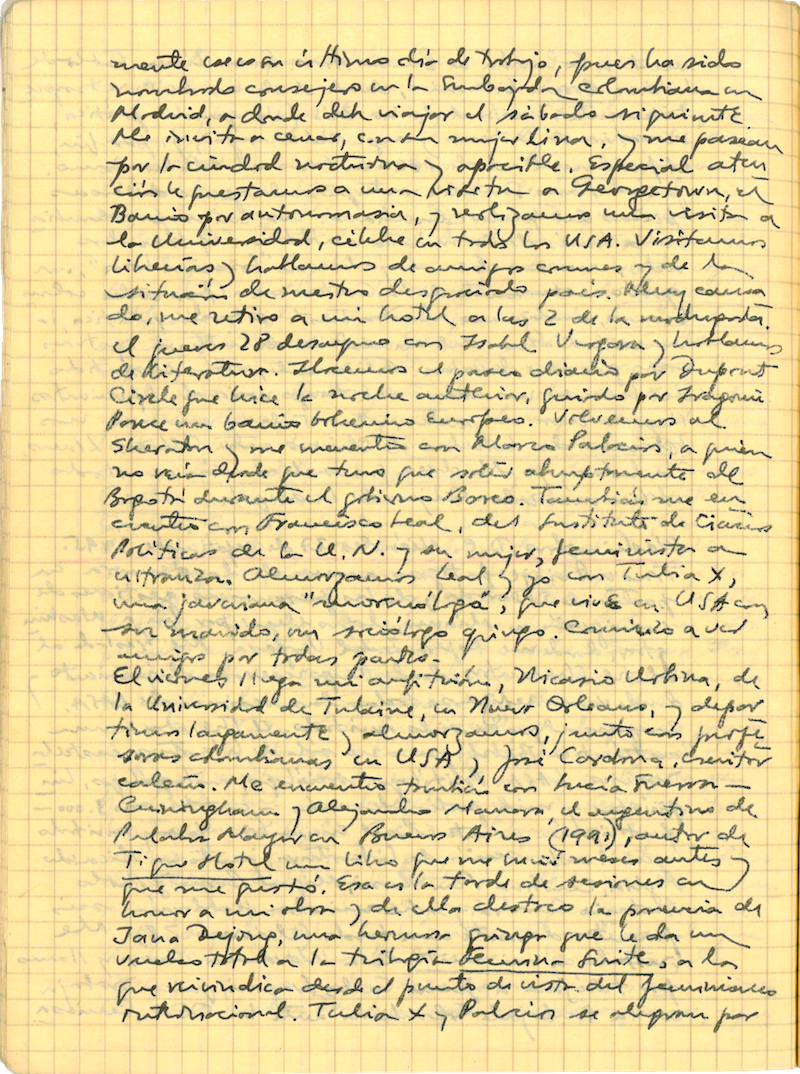 mente es su último día de trabajo, pues ha sido
nombrado consejero en la Embajada colombiana en
Madrid, a donde debe viajar el sábado siguiente
Me invita a cenar, con su mujer Lina, y me pasean
por la ciudad nocturna y apacible. Especial aten
ción le prestamos a una visita a Georgetown, el
Barrio por antonomasia, y realizamos una visita a
la Universidad, célebre en todos los USA. Visitamos
librerías y hablamos de amigos comunes y de la
situación de nuestro desgraciado país. Muy cansa
do, me retiro a mi hotel a las 2 de la madrugada.
El jueves 28 desayuno con Isabel Vergara y hablamos
de literatura. Hacemos el paseo diario por Dupont
Circle que hice la noche anterior, guiado por
Ponce un barrio bohemio europeo. Volvemos al
Sheraton y me encuentro con Marco Palacios, a quien
no veía desde que tuvo que salir abruptamente de
Bogotá durante el gobierno Barco. También me en
cuentro con Francisco Leal, del Instituto de Ciencias
Políticas de la U.N. y su mujer, feminista a
ultranza. Almorzamos Leal y yo con Tulia X,
una javeriana "", que vive en USA con
su marido, un sociólogo gringo. Comienzo a ver
amigos por todas partes.
El viernes llega mi anfitrión, Nicasio Urbina, de
la Universidad de Tulaine, en Nueva Orleans, y depar
timos largamente y almorzamos, junto con profe
soras colombianas en USA y José Cardona, escritor
caleño. Me encuentro también con Lucía Guerra-
Cunningham y Alejandro Manara, el argentino de
Palabra Mayor en Buenos Aires (1991), autor de
Tigre Hotel un libro que me envió meses antes y
que me gustó. Esa es la tarde de sesiones en
honor a mi obra y de ella destaco la ponencia de
Jana Dejong, una hermosa gringa que le da un
vuelco total a la trilogía Femina Suite, a la
que reivindica desde el punto de vista del feminismo
internacional. Tulia X y Palacios se alegran por